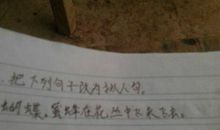 把下列句子改为拟人句。
蝴蝶、蜜蜂在花丛中飞来飞去。